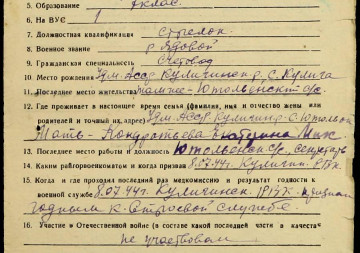 5. Образование 7 клас.
6. На ВУС 1
7. Должностная квалификация Стрелок
8. Военное звание рядовой
9. Гражданская специальность Счетовод
10. Место рождения Удм. Асср Кулигинск. р. С. Кулига
11. Последнее место жительства
12. Где проживает в настоящее время семья (фамилия, имя и отчество жены или
родителей и точный их адрес) Удм. АССР Кулигинск.
Мать - Кондратьева Екатерина
13. Последнее место работы и должность
14. Каким райгорвоенкоматом и когда призван 8.07.44г. Кулигин. РВК
15. Когда и где проходил последний раз медкомиссию и результат годности к
военной службе 8.07.44г. Кулигинск. РВК признан
годным к строевой службе.
16. Участие в Отечественной войне (в составе какой последней части и в качестве
не участвовал